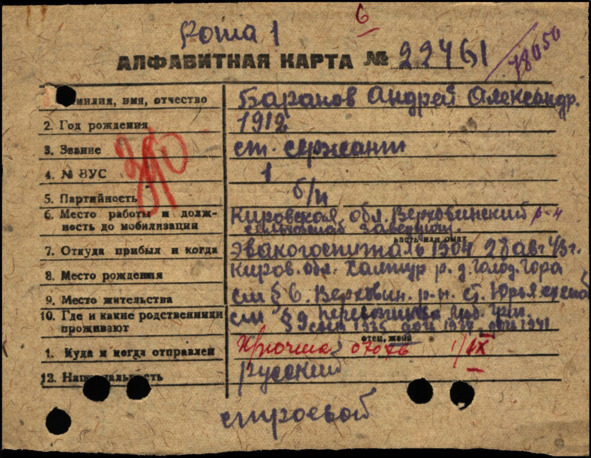 6
Рота 1
АЛФАВИТНАЯ КАРТА № 22461
78050
милия, имя, отчество Баранов Андрей Александр.
2. Год рождения 1912
3. Звание ст. сержант
4. № ВУС 1
5. Партийность б/п
6. Место работы и долж- Кировская обл. Верховинский р-н
ность до мобилизации
7. Откуда прибыл и когда Эвакогоспиталь 1304 28 авг 43 г.
8. Место рождения Киров. обл. Халтур р. д. Голод. Гора
9. Место жительства см § 6. Верховин. р-н. ст. Юрья
10. Где и какие родственники см § 9
проживают 1925 дочь 1934 1941
отец, жена
1. Куда и когда отправлен 07076 1/IX
12. Национальность Русский
строевой